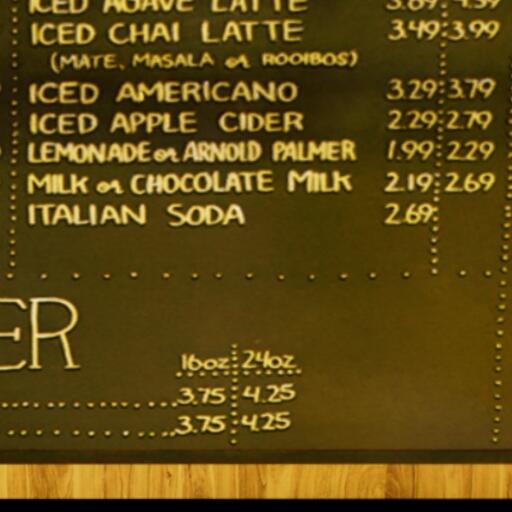 ICED AGAVE LATTE 3.89 4.39
ICED CHAI LATTE 3.49 3.99
(MATE, MASALA or ROOIBOS)
ICED AMERICANO 3.29 3.79
ICED APPLE CIDER 2.29 2.79
LEMONADE or ARNOLD PALMER 1.99 2.29
MILK or CHOCOLATE MILK 2.19 2.69
ITALIAN SODA 2.69
ER
16oz 24oz
3.75 4.25
3.75 4.25